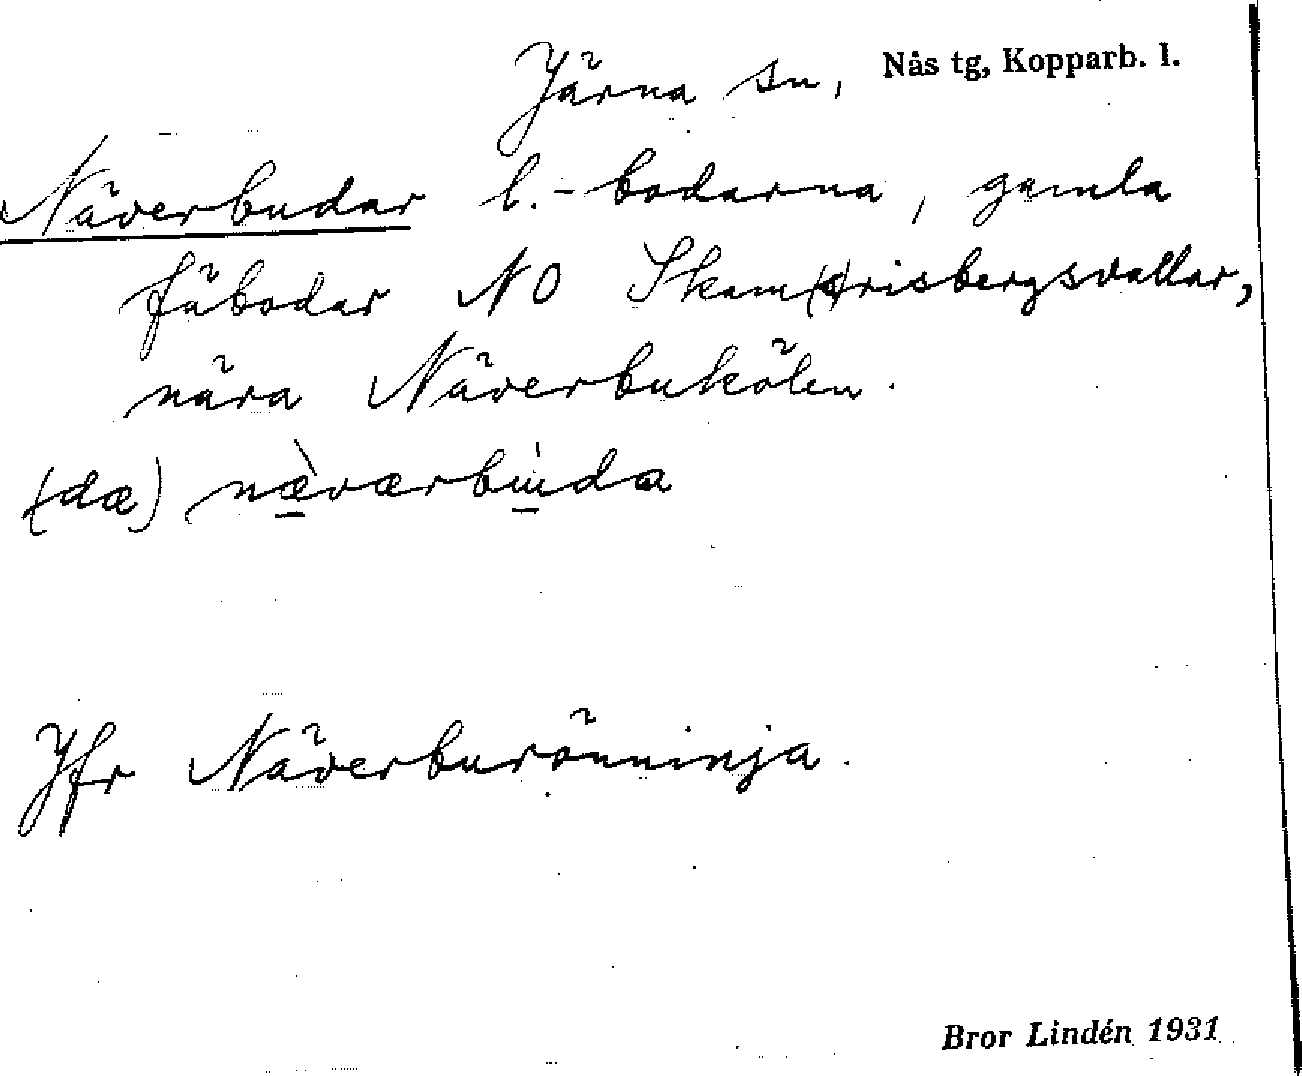 Järna sn, Nås tg, Kopparb. l.
Näverbudar l. -bodarna, gamla
fäbodar NO Skam(s)risbergsvallar,
nära Näverbukölen.
(dæ) næ̀værbùda
Jfr Näverburönninja.
Bror Lindén 1931